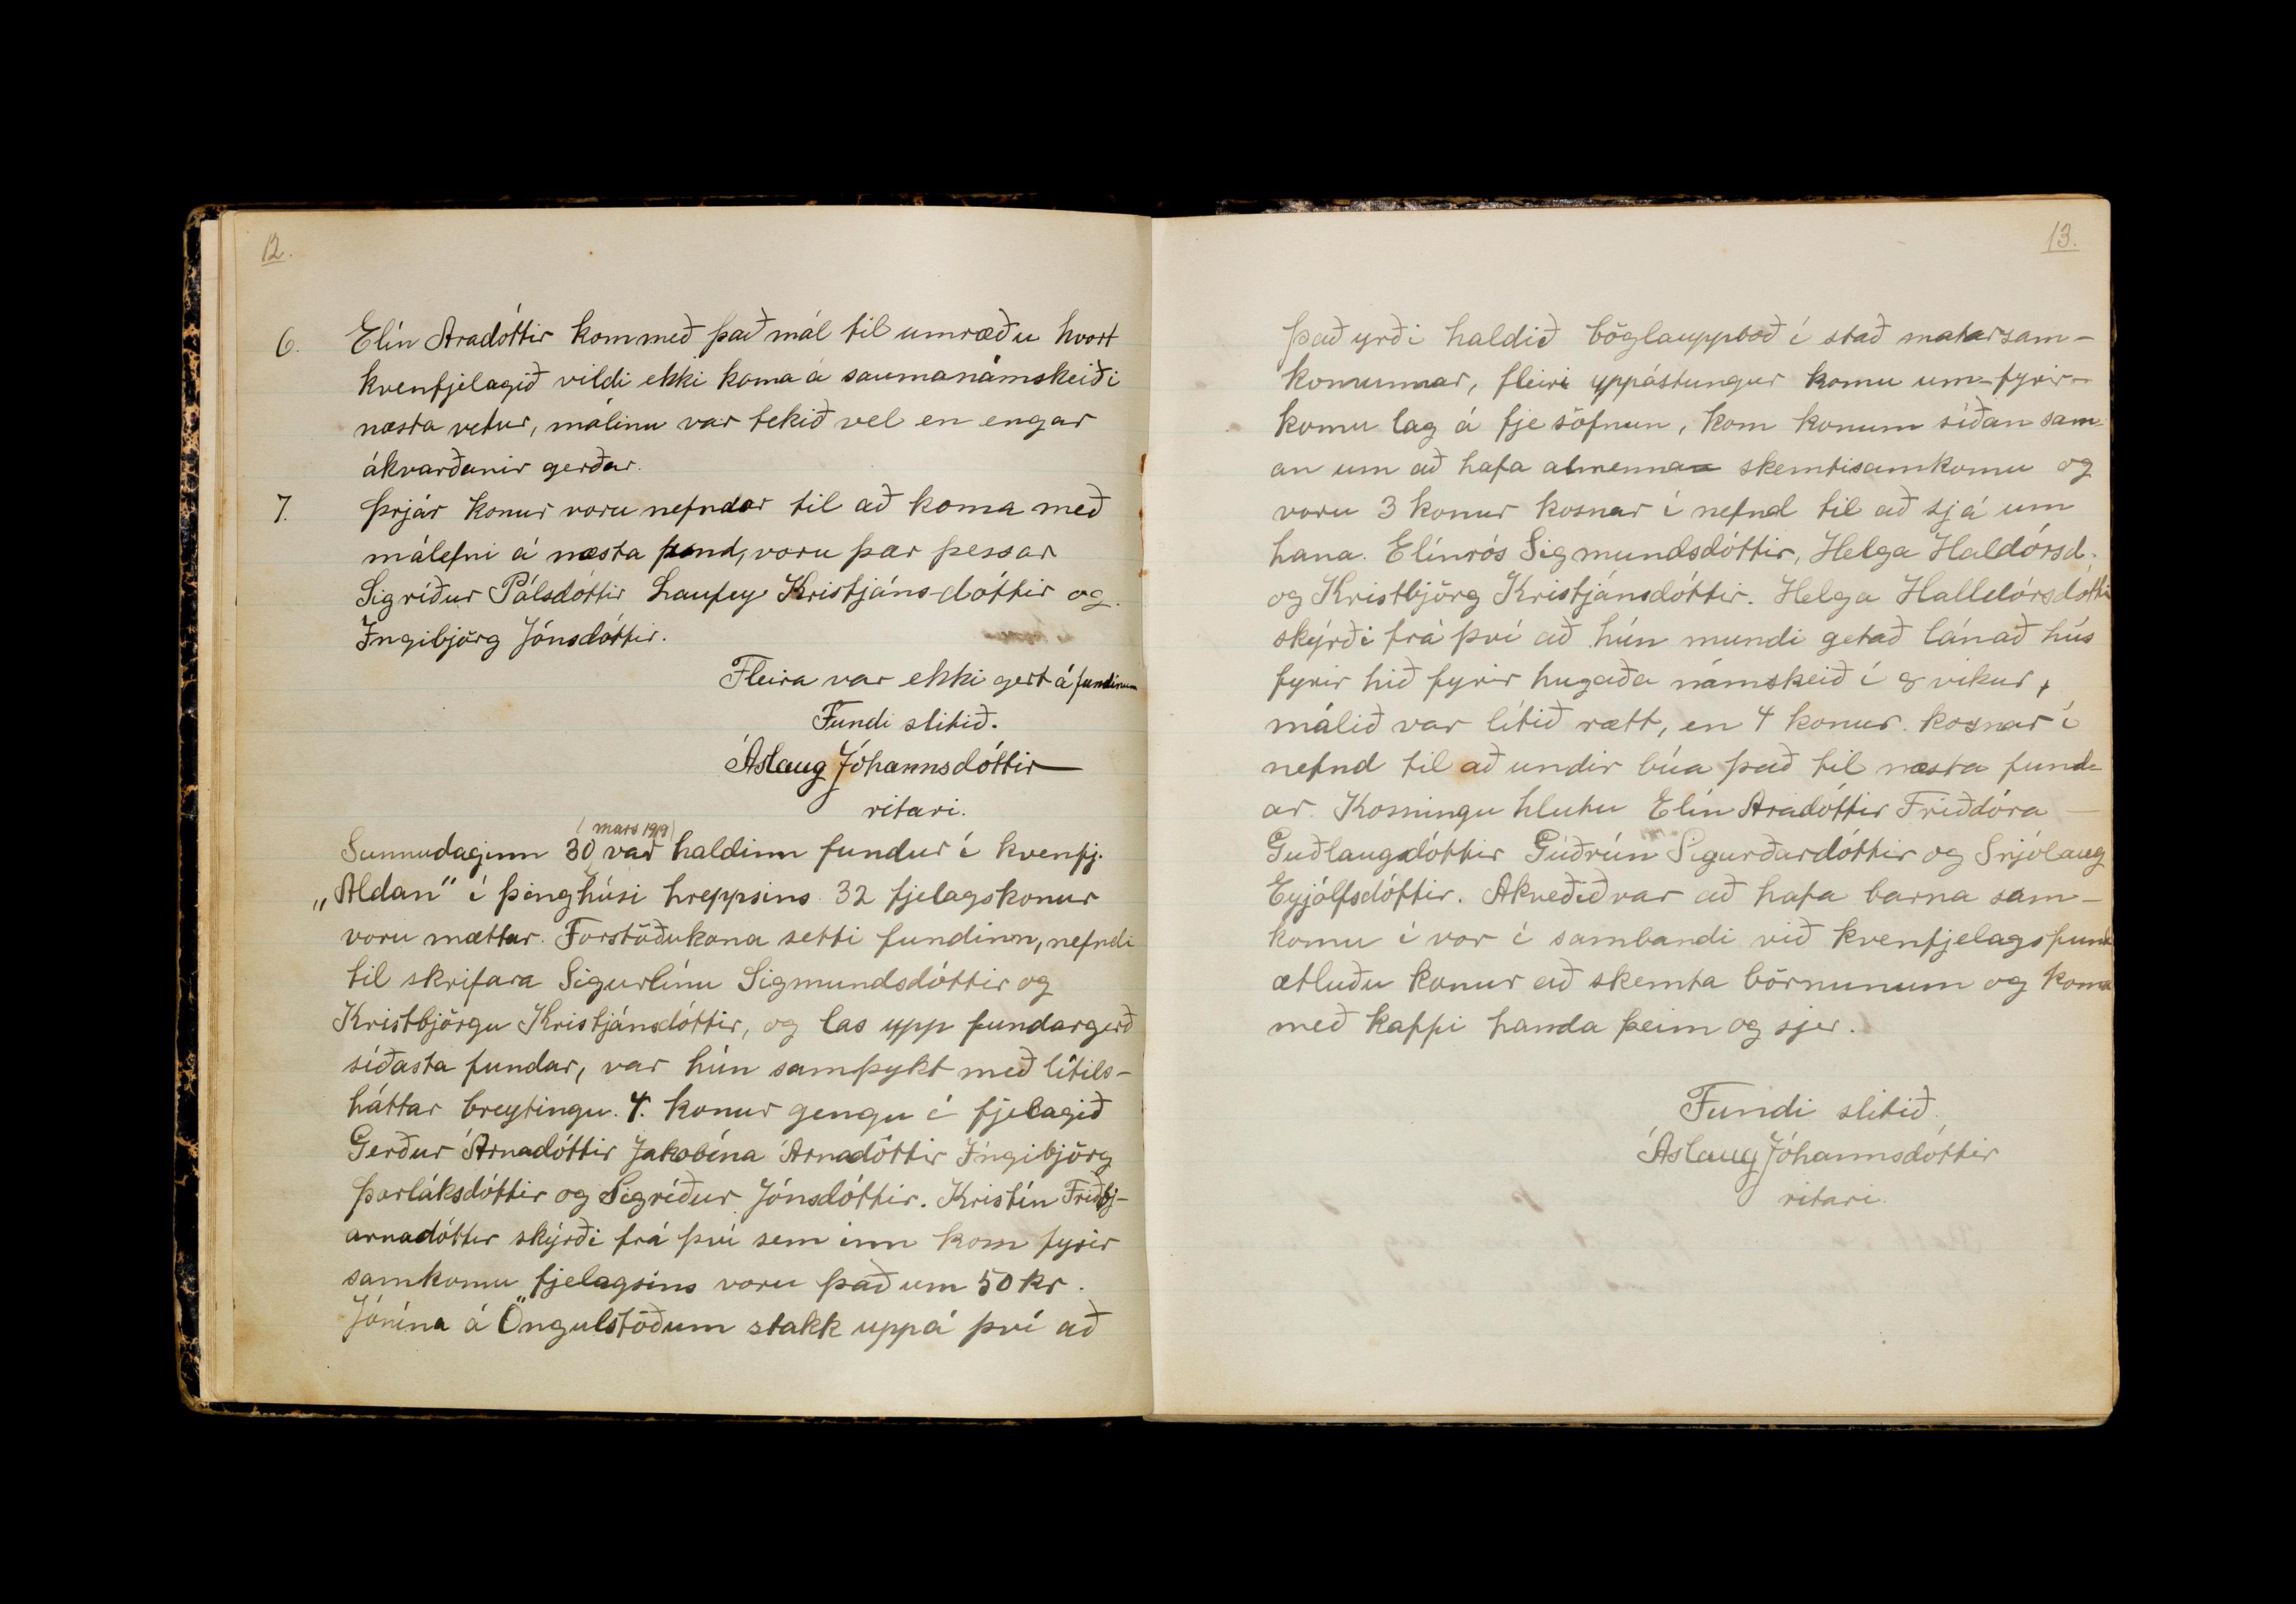 12.
6. Elín Aradóttir kom með það mál til umræðu hvort
kvenfjelagið vildi ekki koma á saumanámskeiði
næsta vetur, málinu var tekið vel en engar
ákvarðanir gerðar.
7. Þrjár konur voru nefndar til að koma með
málefni á næsta fund, voru þær þessar
Sigríður Pálsdóttir Laufey Kristjáns-dóttir og
Ingibjörg Jónsdóttir.
Fleira var ekki gert á fundinum
Fundi slitið.
Áslaug Jóhannsdóttir
ritari.
(mars 1919)
Sunnudaginn 30 var haldinn fundur í kvenfj.
„Aldan" í þinghúsi hreppsins 32 fjelagskonur
voru mættar. Forstöðukona setti fundinn, nefndi
til skrifara Sigurlínu Sigmundsdóttir og
Kristbjörgu Kristjánsdóttir, og las upp fundargerð
síðasta fundar, var hún samþykt með lítils-
háttar breytingu. 4. konur gengu í fjelagið
Gerður Árnadóttir Jakobína Árnadóttir Ingibjörg
Þorláksdóttir og Sigríður Jónsdóttir. Kristín Friðbj-
arnadóttir skýrði frá því sem inn kom fyrir
samkomu fjelagsins voru það um 50 kr.
Jónína á Öngulstöðum stakk uppá því að
13.
það yrði haldið böglauppboð í stað matarsam-
komunnar, fleiri uppástungur komu um fyrir-
komu lag á fje söfnun, kom konum síðan sam-
an um að hafa almenna skemtisamkomu og
voru 3 konur kosnar í nefnd til að sjá um
hana. Elínrós Sigmundsdóttir, Helga Haldórsd.
og Kristbjörg Kristjánsdóttir. Helga Halldórsdóttir
skýrði frá því að hún mundi getað lánað hús
fyrir hið fyrir hugaða námskeið í 8 vikur,
málið var lítið rætt, en 4 konur kosnar í
nefnd til að undir búa það til næsta fund-
ar. Kosningu hlutu Elín Aradóttir Friðdóra
Guðlaugsdóttir Guðrún Sigurðardóttir og Snjólaug
Eyjólfsdóttir. Akveðið var að hafa barna sam-
komu í vor í sambandi við kvenfjelagsfund
ætluðu konur að skemta börnunum og koma
með kaffi handa þeim og sjer.
Fundi slitið.
Áslaug Jóhannsdóttir
ritari.